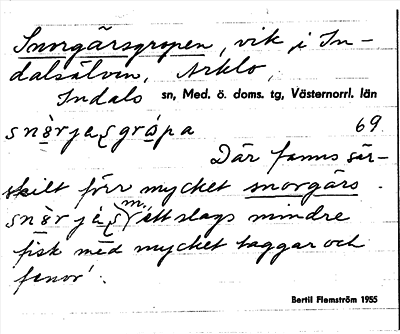 Snorgärsgropen, vik i In-
dalsälven, Arklo,
Indals sn, Med. ö. doms. tg, Västernorrl. län
69.
Där fanns sär-
skilt förr mycket snorgärs.
m. ett slags mindre
fisk med mycket taggar och
fenor.
Bertil Flemström 1955